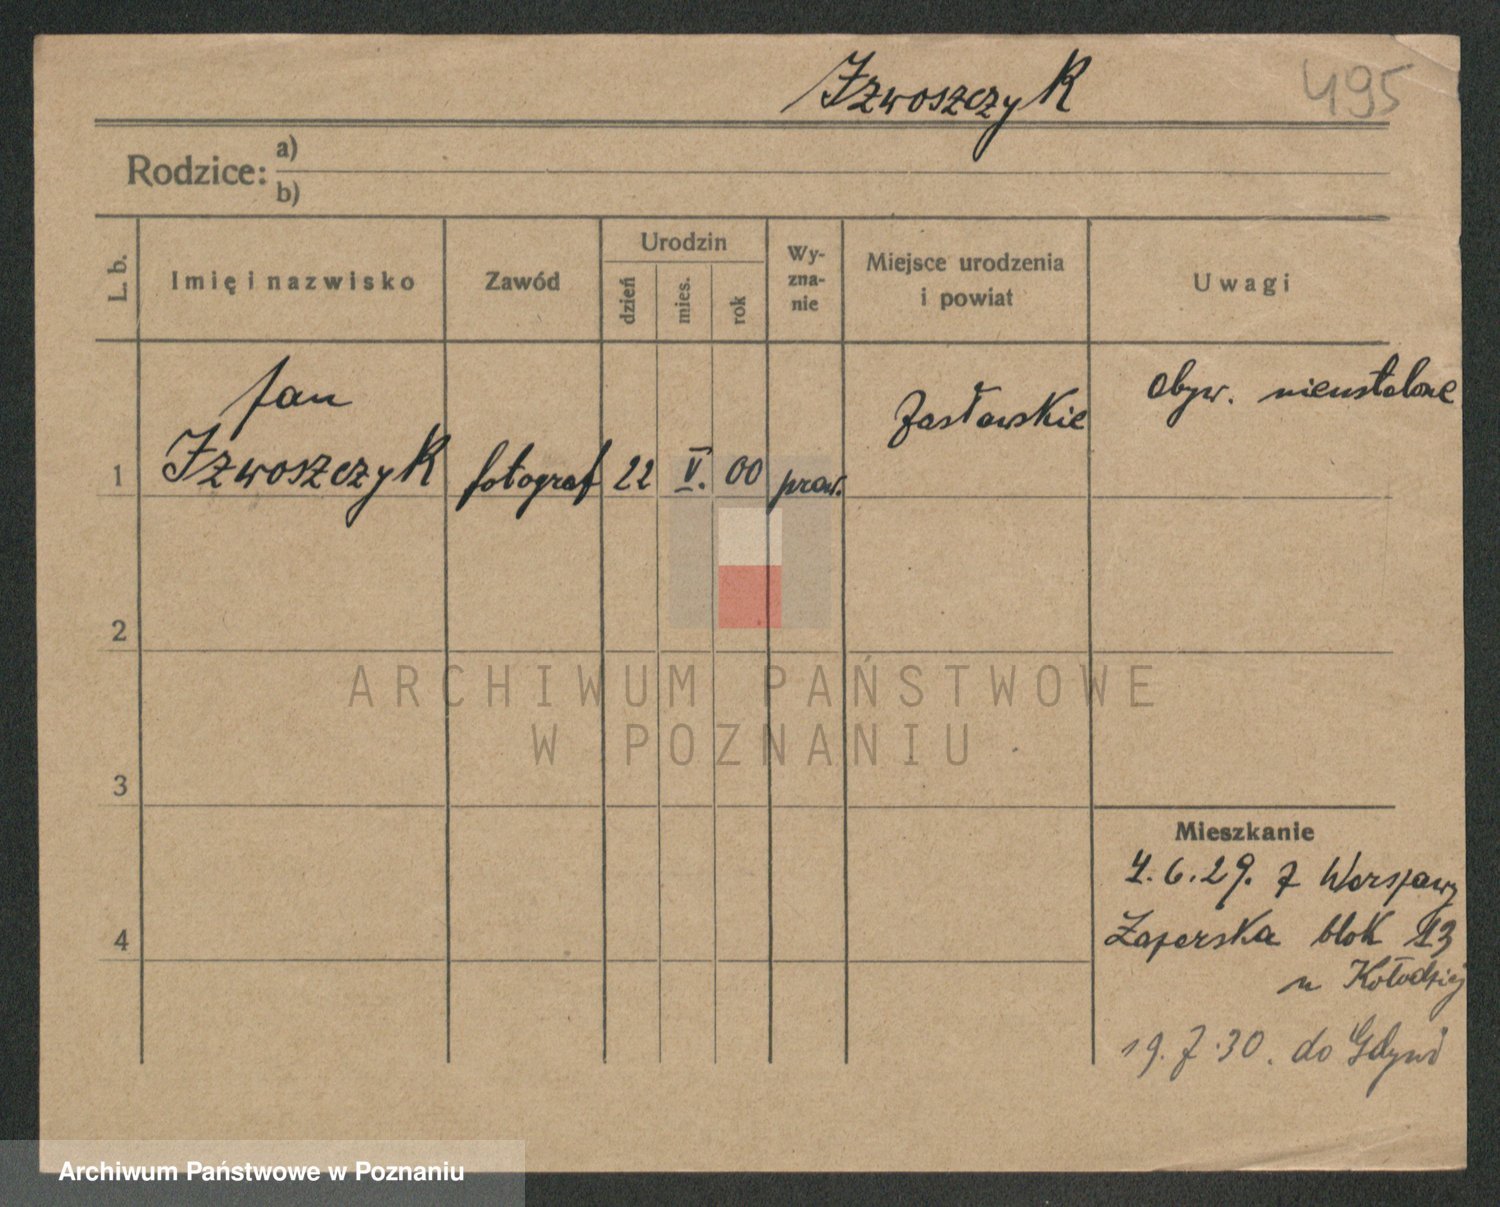 Izwoszczyk
495
Rodzice: a)
b)
L. b.
Imię i nazwisko
Zawód
Urodzin
dzień
mies.
rok
Wy-
zna-
nie
Miejsce urodzenia
i powiat
Uwagi
Jan
obyw. nieustalone
Zasławskie
1 Izwoszczyk fotograf 22 V. 00 praw.
2
ARCHIWUM PAŃSTWOWE
W POZNANIU
3
Mieszkanie
4.6.29. z Warszawy
4
blok 13
u Kołodziej
19.7.30. do Gdyni
Archiwum Państwowe w Poznaniu